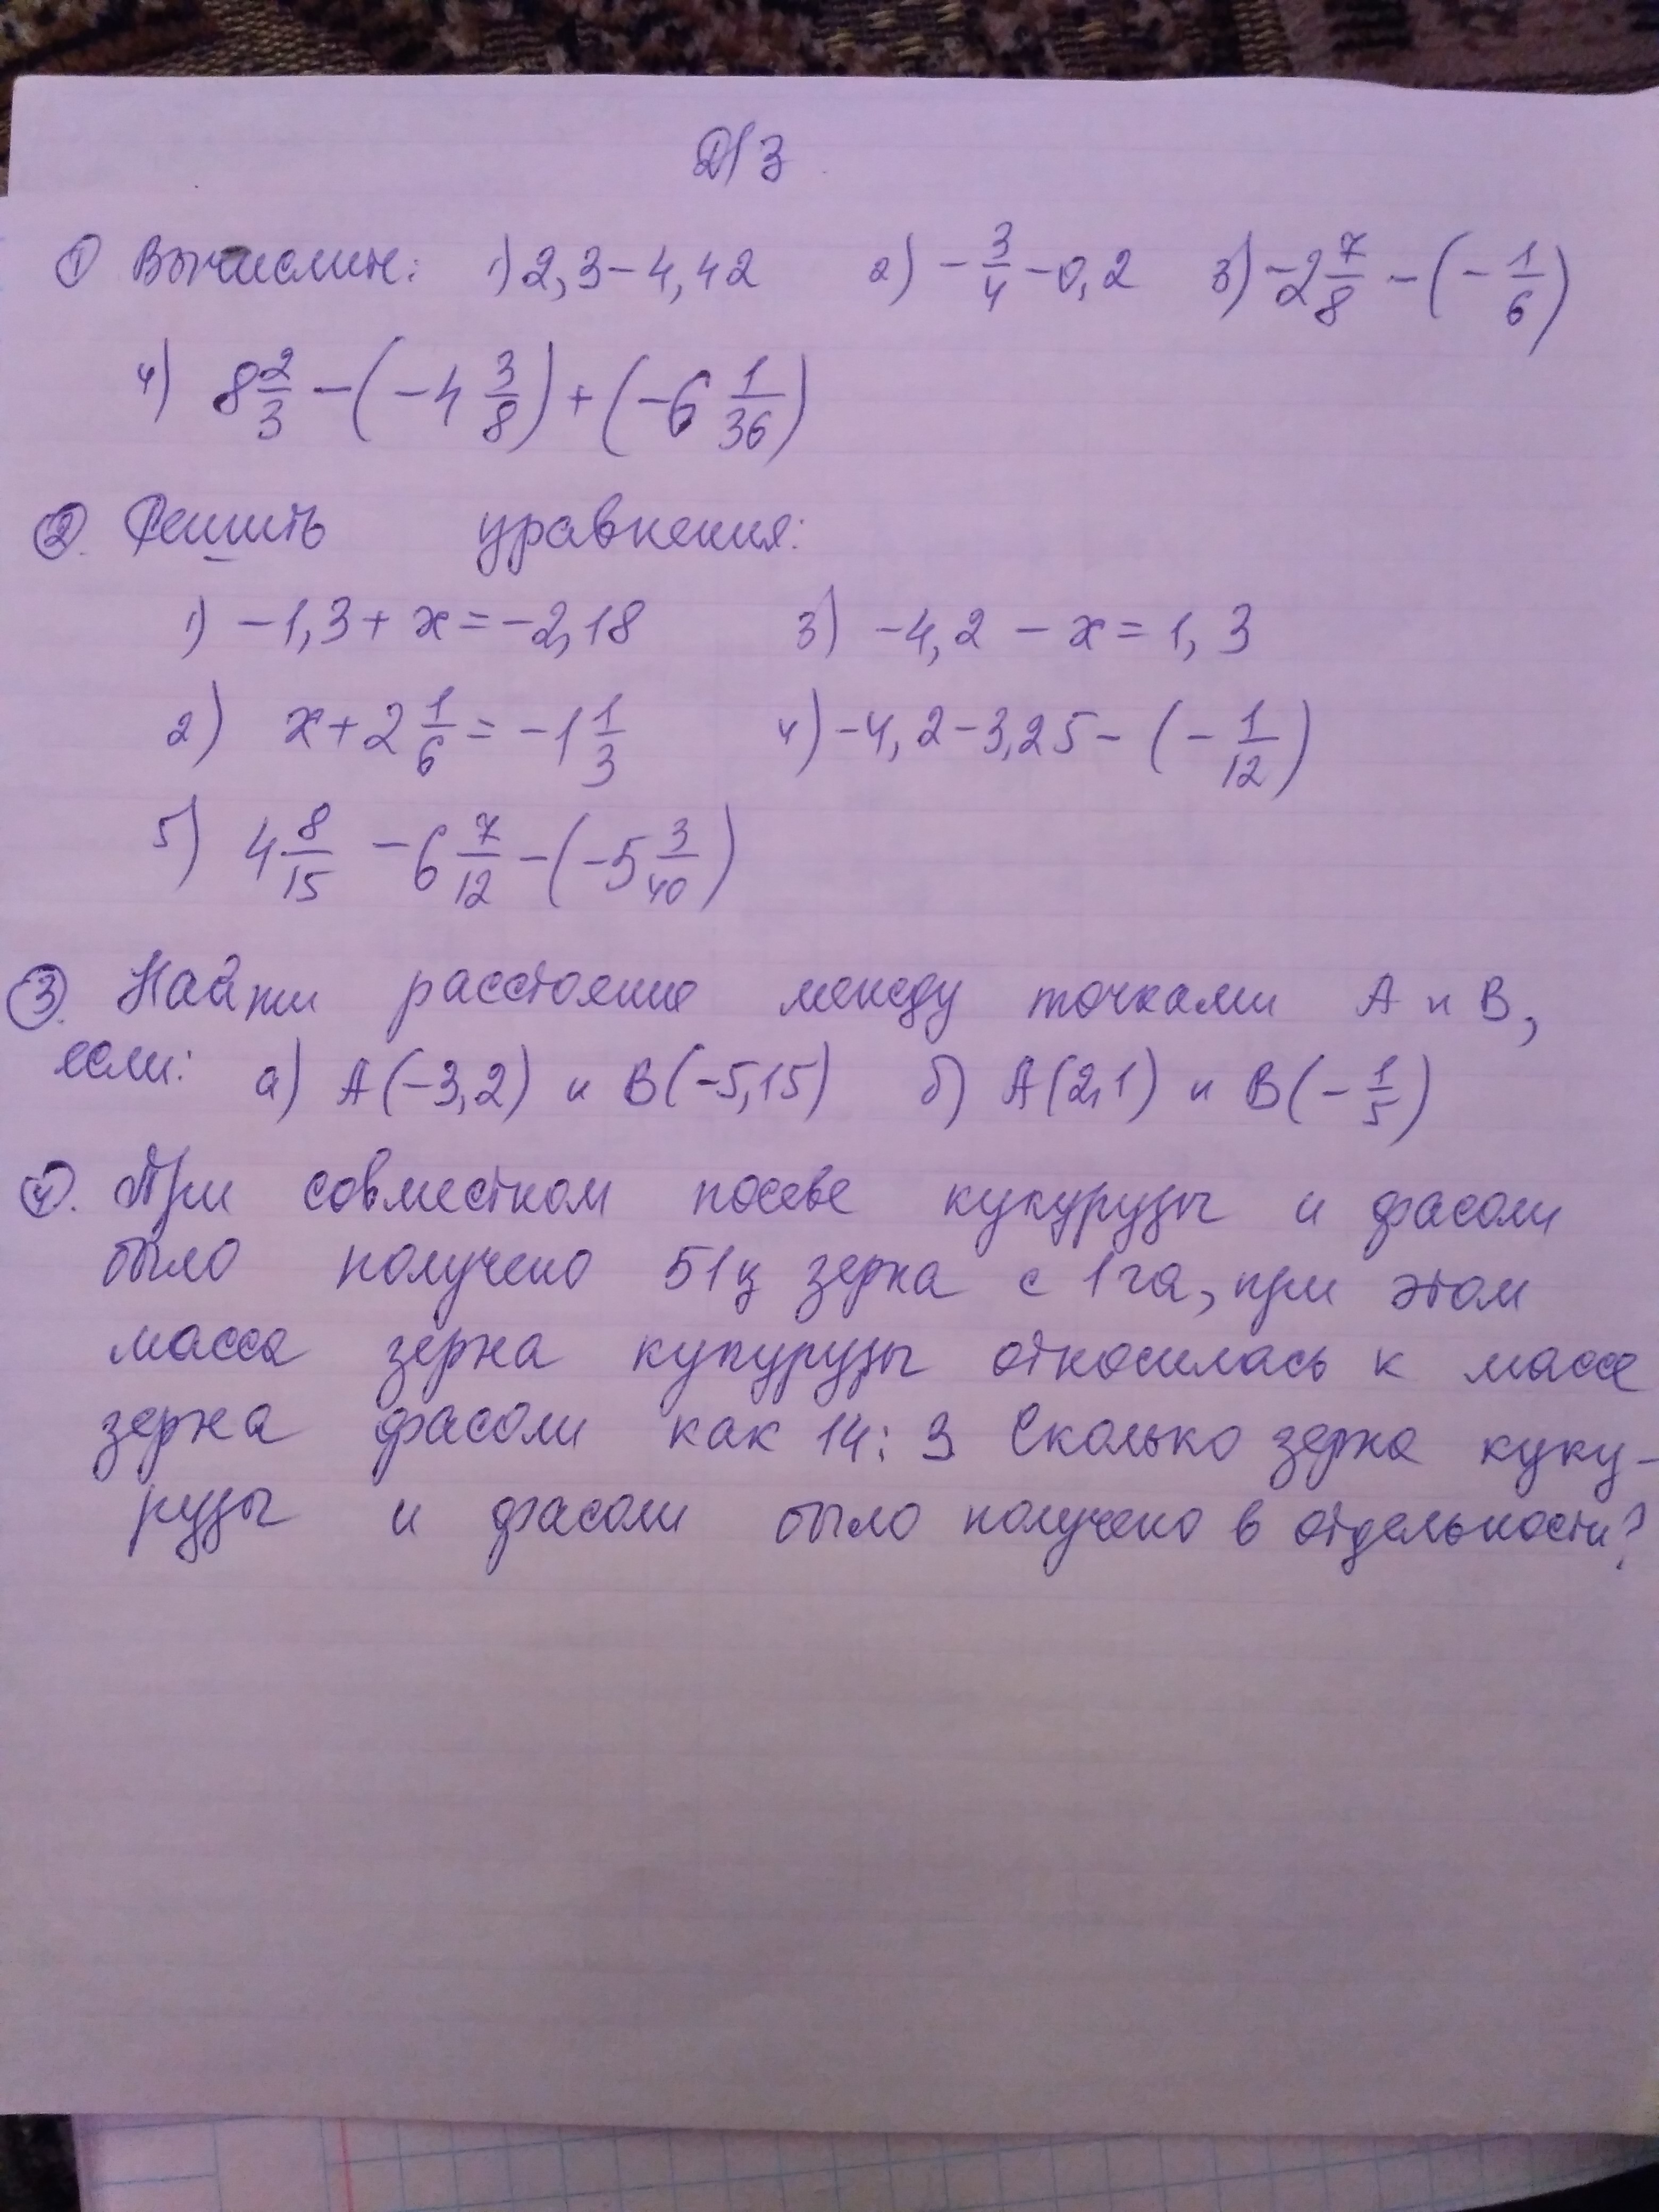 Д/З
① Вычислит: 1) 2,3-4,42 2) -3/4-0,2 3) -2 7/8-(-1/6)
4) 8 2/3-(-4 3/8)+(-6 1/36)
②. Решить уравнения:
1) -1,3+x=-2,18 3) -4,2-x=1,3
2) x+2 1/6=-1 1/3 4) -4,2-3,25-(-1/12)
5) 4 8/15-6 7/12-(-5 3/40)
③. Найти расстояние между точками А и В,
если: а) А(-3,2) и В(-5,15) б) А(2,1) и В(-1/5)
④. При совместном посеве кукурузы и фасоли
было получено 51ц зерна с 1га, при этом
масса зерна кукурузы относилась к массе
зерна фасоли как 14:3 Сколько зерна куку-
рузы и фасоли было получено в отдельности?